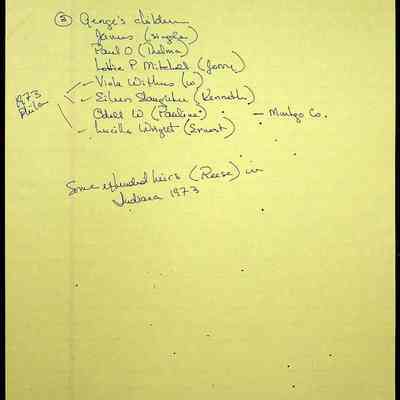 ⑤ George's children
James (single)
Paul O (Thelma)
Lottie P Mitchell (Jerry)
Viola Withers (w)
1973
Phila
Eileen Slaughter (Kenneth)
Odell W (Pauline) — Montgo Co.
Lucille Wright (Ernest)
Some hundred heirs (Reese) in
Indiana 1973